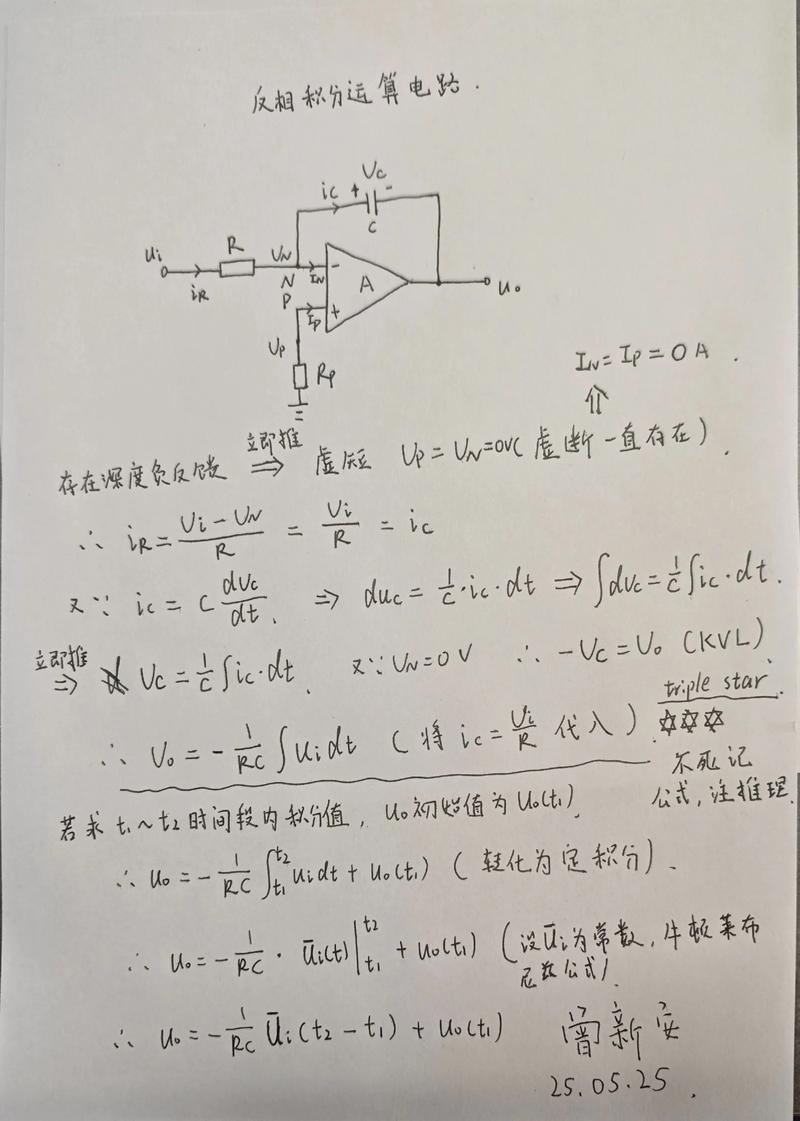 反相积分运算电路.
Vc
ic + -
C
Ui R VN
iR N IN - A
P IP +
Uo
Up
Rp
IN = IP = 0 A .
⇑
存在深度负反馈 立即推 ⇒ 虚短 UP = UN = 0V ( 虚断一直存在 ) .
∴ iR = (Ui - UN)/R = Ui/R = ic
又∵ ic = C dUc/dt . ⇒ duc = 1/C · ic · dt ⇒ ∫dUc = 1/C ∫ic · dt .
立即推 ⇒ Uc = 1/C ∫ic · dt . 又∵ UN = 0 V ∴ -Uc = Uo (KVL) .
triple star
∴ Uo = - 1/RC ∫ Ui dt ( 将 ic = Ui/R 代入 ) . ✡✡✡
不死记
公式, 注推理.
若求 t1 ~ t2 时间段内积分值, Uo 初始值为 Uo(t1) .
∴ Uo = - 1/RC ∫t1t2 Ui dt + Uo(t1) ( 转化为定积分 ) .
∴ Uo = - 1/RC · Ūi(t) |t1t2 + Uo(t1) ( 设Ūi为常数, 牛顿莱布
尼兹公式 ) .
∴ Uo = - 1/RC Ūi (t2 - t1) + Uo(t1)
新安
25.05.25 .